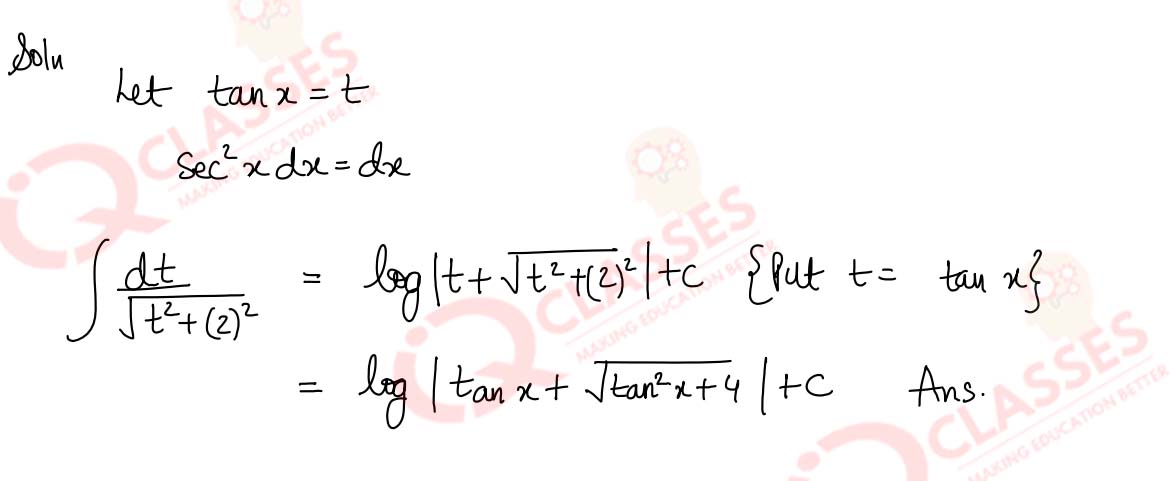 Soln
Let tan x = t
Sec² x dx = dx
∫ dt / √(t² + (2)²) = log |t + √(t² + (2)²)| + C {Put t = tan x}
= log | tan x + √(tan² x + 4) | + C Ans.
CLASSES
MAKING EDUCATION BETTER
CLASSES
MAKING EDUCATION BETTER
CLASSES
MAKING EDUCATION BETTER